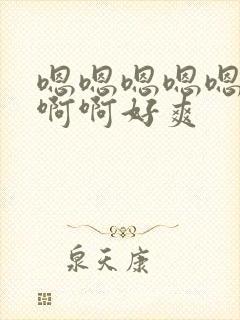 嗯嗯嗯嗯嗯
啊啊好爽
泉天康